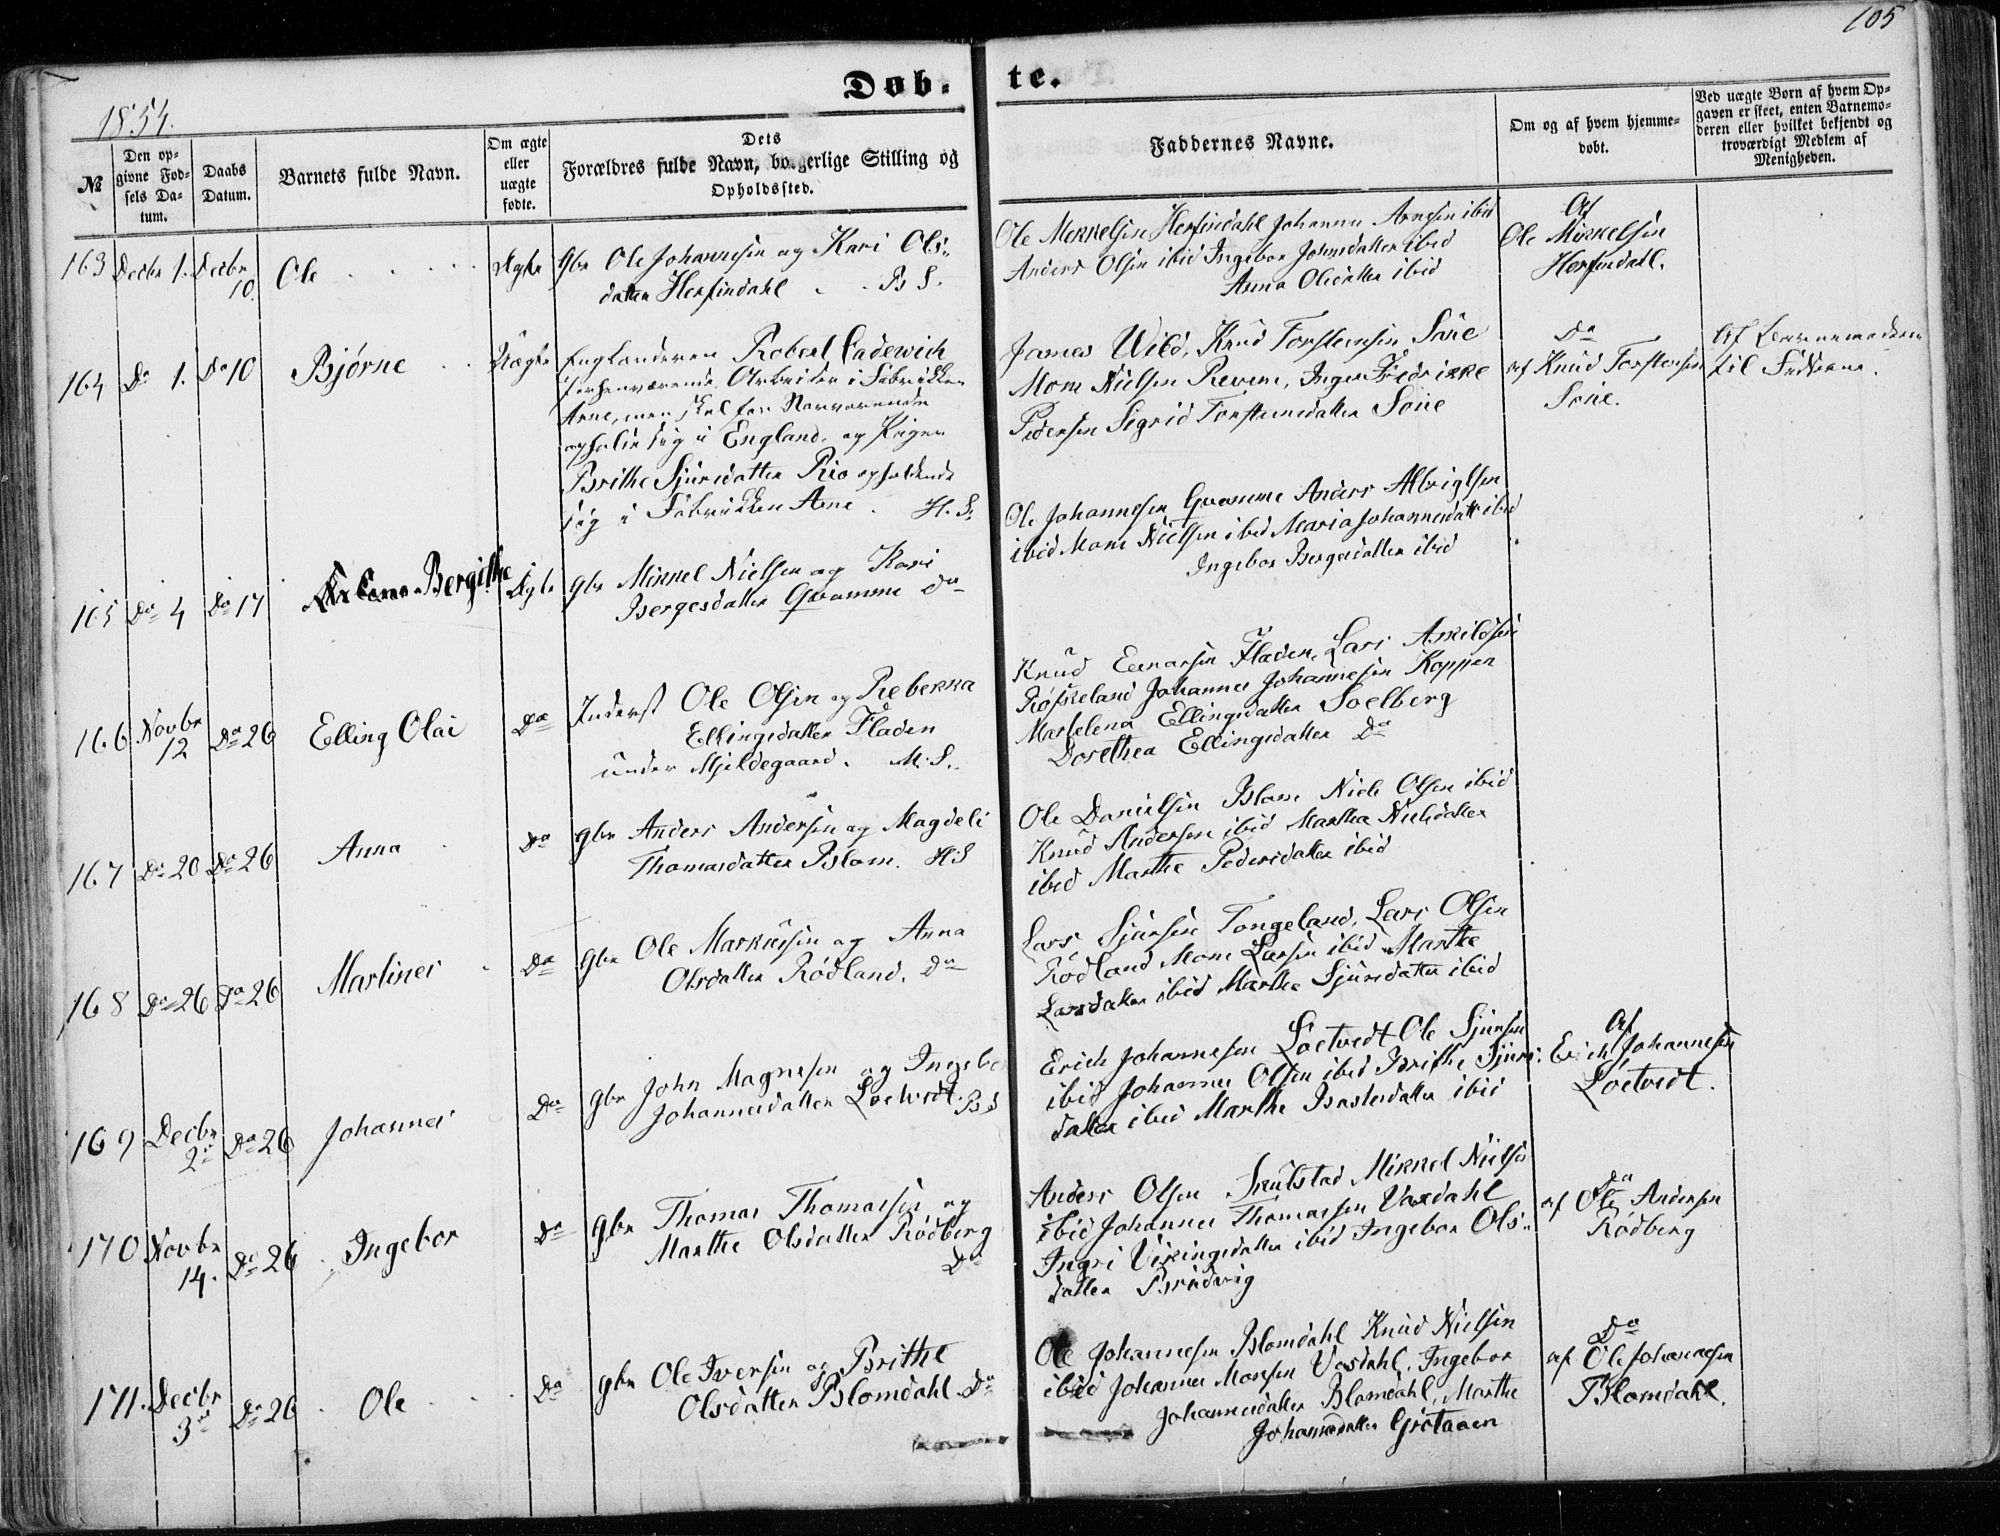 105
Døb- te.
1854.
№
Den opgivne Fødsels Datum.
Daabs Datum.
Barnets fulde Navn.
Om ægte eller uægte fødte.
Dets Forældres fulde Navn, borgerlige Stilling og Opholdssted.
Faddernes Navne.
Om og af hvem hjemmedøbt.
Ved uægte Børn af hvem Opgaven er skeet, enten Barnemoderen eller hvilket bekjendt og troværdigt Medlem af Menigheden.
163 Decbr 1. Decbr 10. Ole Ægte
Gbr Ole Johannesen og Kari Ols-
datter Herfindahl B S.
Ole Mikkelsen Herfindahl Johannes Arnesen ibid
Anders Olsen ibid Ingebor Johnsdatter ibid
Anna Olsdatter ibid
Af
Ole Mikkelsen
Herfindahl.
164 Do 1. Do 10 Bjørne Uægte
Englænderen Robert Cadewich
forhenværende Arbeider i Fabrikken
Arne, men skal for Nærværende
opholde sig i England, og Pigen
Brithe Sjursdatter Rio opholdende
sig i Fabrikken Arne. H. S.
James Wild, Knud Torstensen Søre
Mons Nielsen Reven, Inger Fredrikke
Pedersen Sigrid Torstensdatter Søre
Do
af Knud Torstensen
Søre.
Af Barnemoderen
til Fadderne.
165 Do 4 Do 17 Bergithe Ægte
Gbr Mikkel Nielsen og Kari
Børgesdatter Qvamme Do
Ole Johannesen Qvamme Anders Albrigtsen
ibid Mons Nielsen ibid Maria Johannesdatter ibid
Ingebor Børgesdatter ibid
166 Novbr 12 Do 26 Elling Olai Do
Inderst Ole Olsen og Rebekka
Ellingsdatter Fladen
under Mjeldegaard. M. S.
Knud Eenarsen Fladen, Lars Askildsen
Røfskeland Johannes Johannesen Koppen
Marselena Ellingsdatter Soelberg
Dorethea Ellingsdatter Do
167 Do 20 Do 26 Anna Do
Gbr Anders Andersen og Magdeli
Thomasdatter Blom. H. S
Ole Danielsen Blom Niels Olsen ibid
Knud Andersen ibid Martha Nielsdatter
ibid Marthe Pedersdatter ibid
168 Do 26 Do 26 Martines Do
Gbr Ole Markusen og Anna
Olsdatter Rødland. Do
Lars Sjursen Tongeland, Lars Olsen
Rødland Mons Larsen ibid Marthe
Larsdatter ibid Marthe Sjursdatter ibid
169 Decbr 2 Do 26 Johannes Do
Gbr John Magnesen og Ingebor
Johannesdatter Loetvedt. B S
Erich Johannesen Loetvedt Ole Sjursen
ibid Johannes Olsen ibid Brithe Sjurs-
datter ibid Marthe Baardsdatter ibid
Af
Erich Johannesen
Loetvedt.
170 Novbr 14. Do 26 Ingebor Do
Gbr Thomas Thomassen og
Marthe Olsdatter Rødberg
Do
Anders Olsen Skulstad Mikkel Nielsen
ibid Johannes Thomassen Vaxdahl
Ingri Vikingsdatter ibid Ingebor Ols-
datter Brudvig
Do
af Ole Andersen
Rødberg
171. Decbr 3 Do 26 Ole Do
Gbr Ole Iversen og Brithe
Olsdatter Blomdahl Do
Ole Johannesen Blomdahl Knud Nielsen
ibid Johannes Monsen Vasdahl, Ingebor
Johannesdatter Blomdahl, Marthe
Johannesdatter Grøtaaen
Do
af Ole Johannesen
Blomdahl.